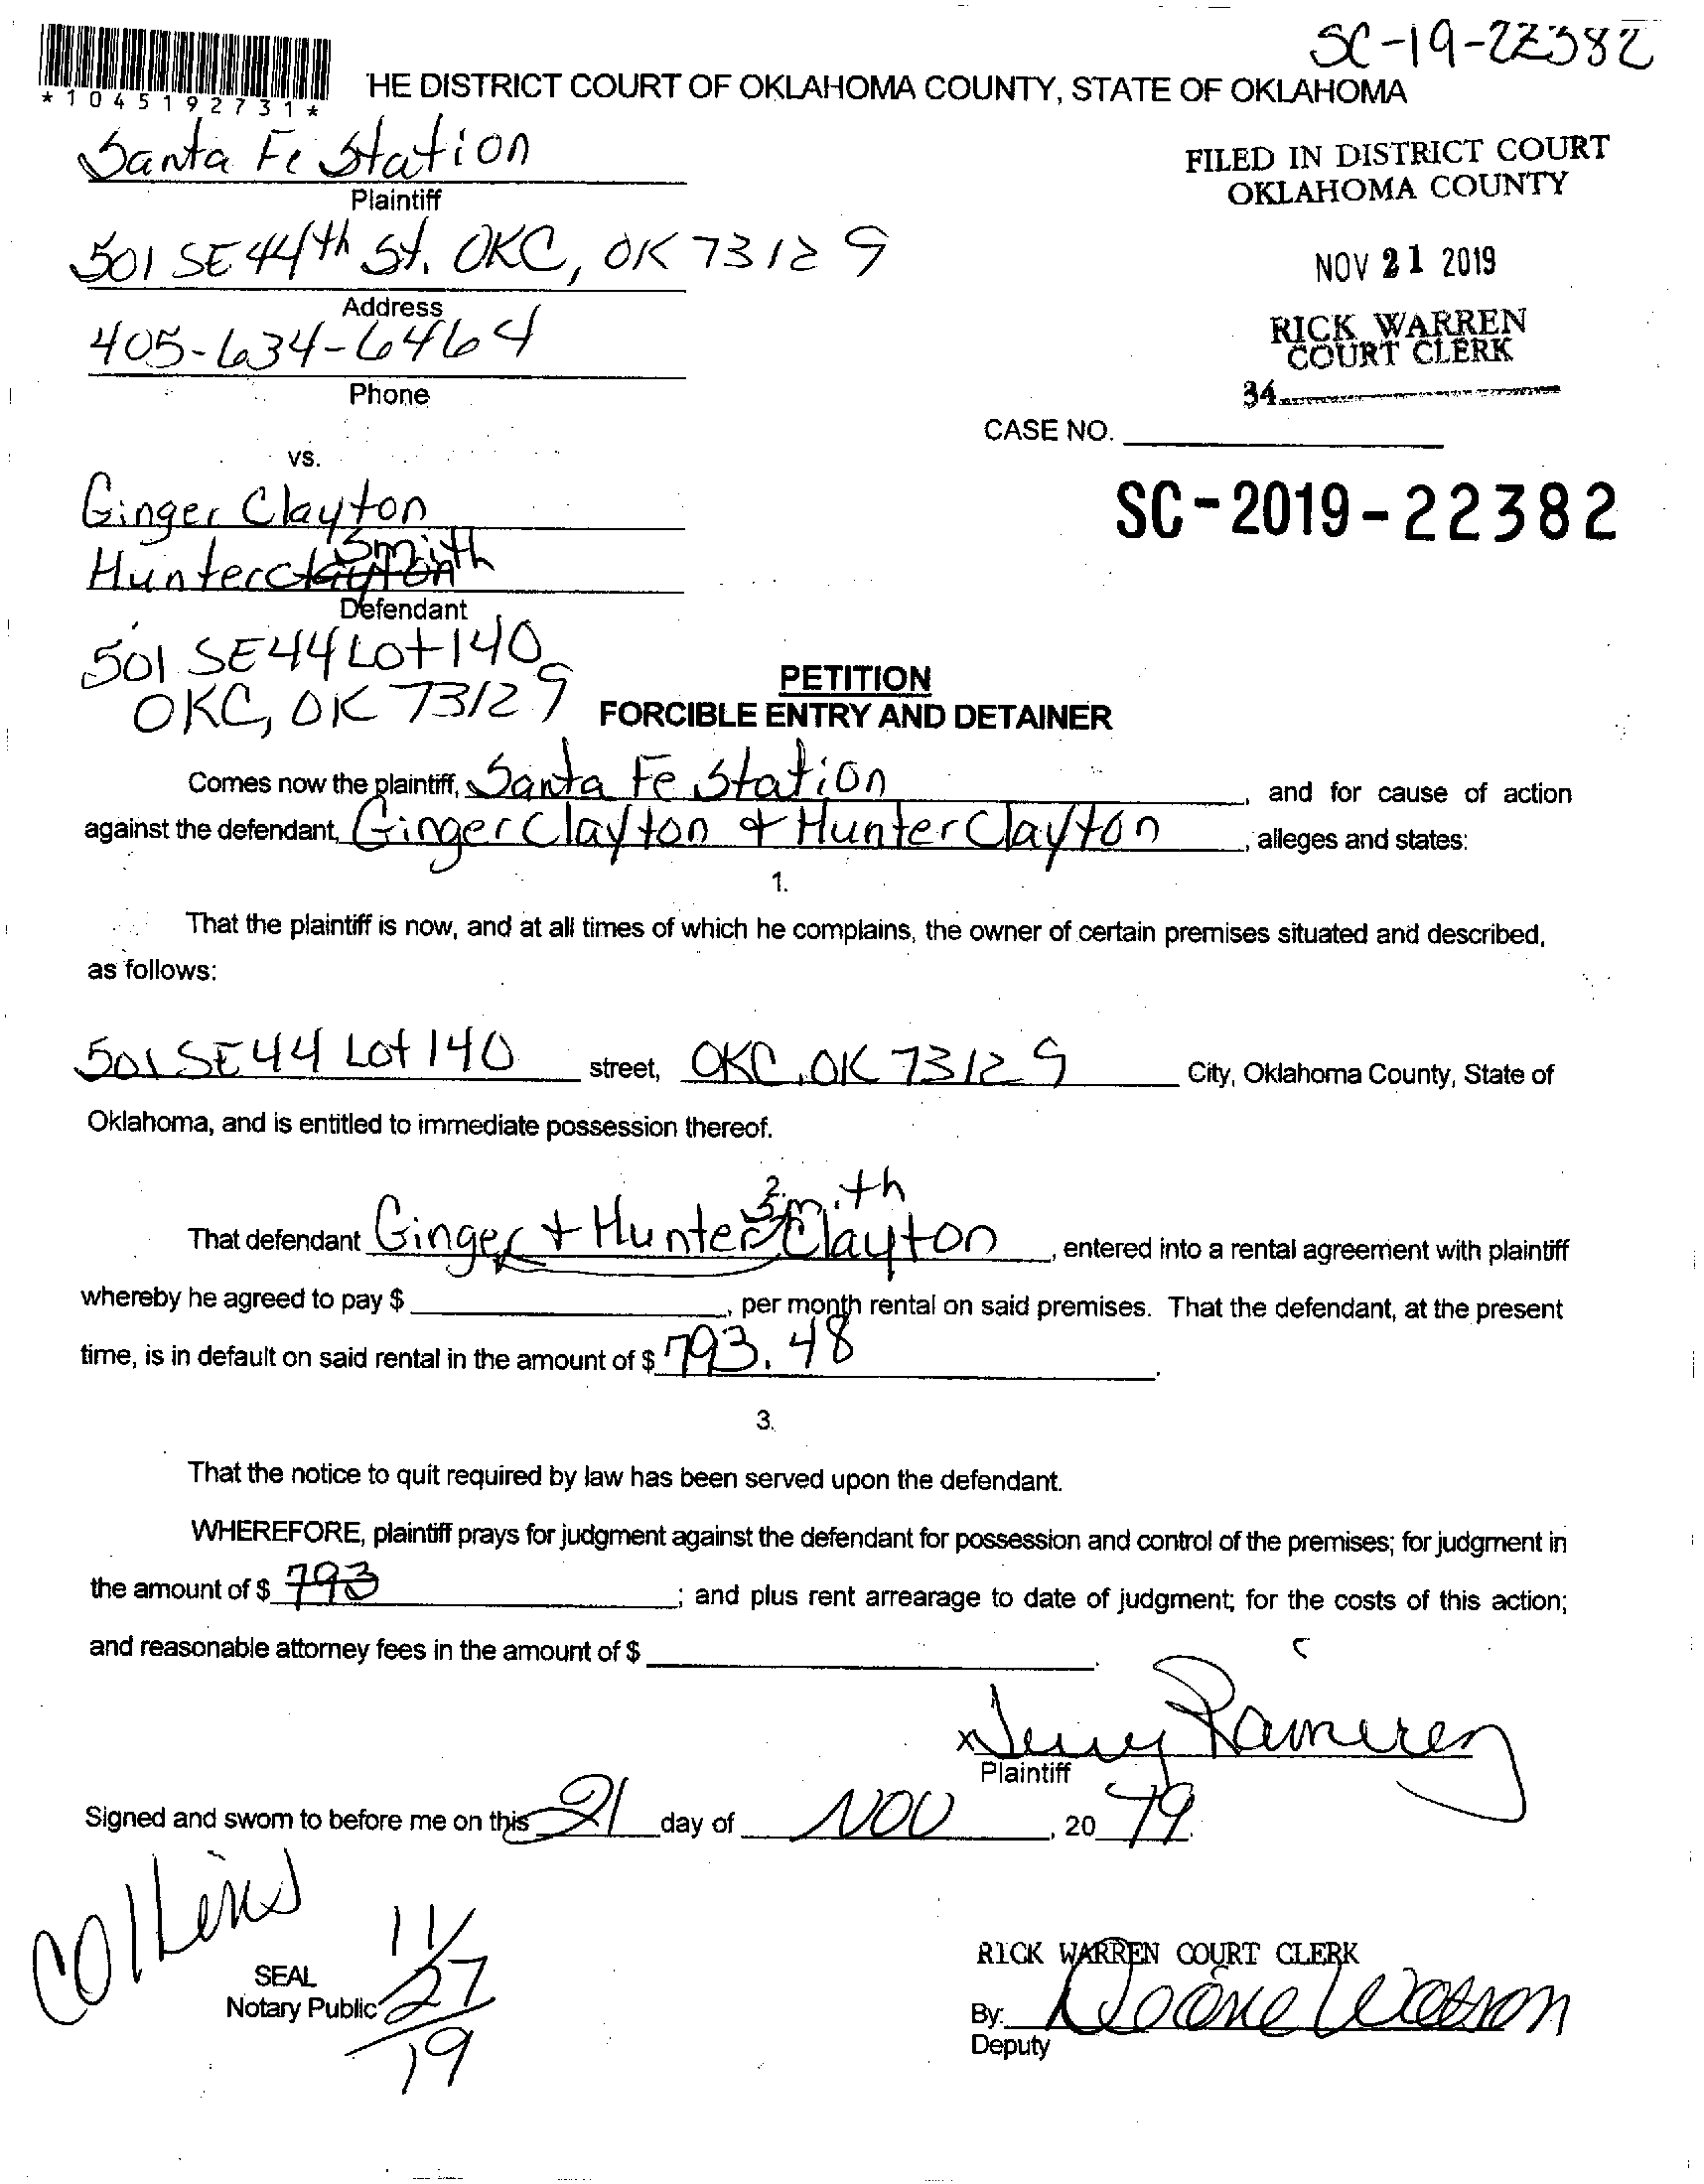 SC-19-22382
*1045192731*
HE DISTRICT COURT OF OKLAHOMA COUNTY, STATE OF OKLAHOMA
Santa Fe Station
Plaintiff
FILED IN DISTRICT COURT
OKLAHOMA COUNTY
501 SE 44th St. OKC, OK 73129
Address
NOV 21 2019
405-634-6464
Phone
RICK WARREN
COURT CLERK
34
CASE NO.
vs.
Ginger Clayton
SC-2019-22382
Smith
Hunter Clayton
Defendant
501 SE 44 Lot 140
OKC, OK 73129
PETITION
FORCIBLE ENTRY AND DETAINER
Comes now the plaintiff, Santa Fe Station, and for cause of action
against the defendant, Ginger Clayton & Hunter Clayton, alleges and states:
1.
That the plaintiff is now, and at all times of which he complains, the owner of certain premises situated and described,
as follows:
501 SE 44 Lot 140 street, OKC, OK 73129 City, Oklahoma County, State of
Oklahoma, and is entitled to immediate possession thereof.
2.
Smith
That defendant Ginger + Hunter Clayton, entered into a rental agreement with plaintiff
whereby he agreed to pay $, per month rental on said premises. That the defendant, at the present
time, is in default on said rental in the amount of $ 793.48.
3.
That the notice to quit required by law has been served upon the defendant.
WHEREFORE, plaintiff prays for judgment against the defendant for possession and control of the premises; for judgment in
the amount of $ 793; and plus rent arrearage to date of judgment; for the costs of this action;
and reasonable attorney fees in the amount of $.
x Ramirez
Plaintiff
Signed and sworn to before me on this 21 day of NOV, 2019.
Collins
11/27/19
SEAL
Notary Public
RICK WARREN COURT CLERK
By: Watson
Deputy